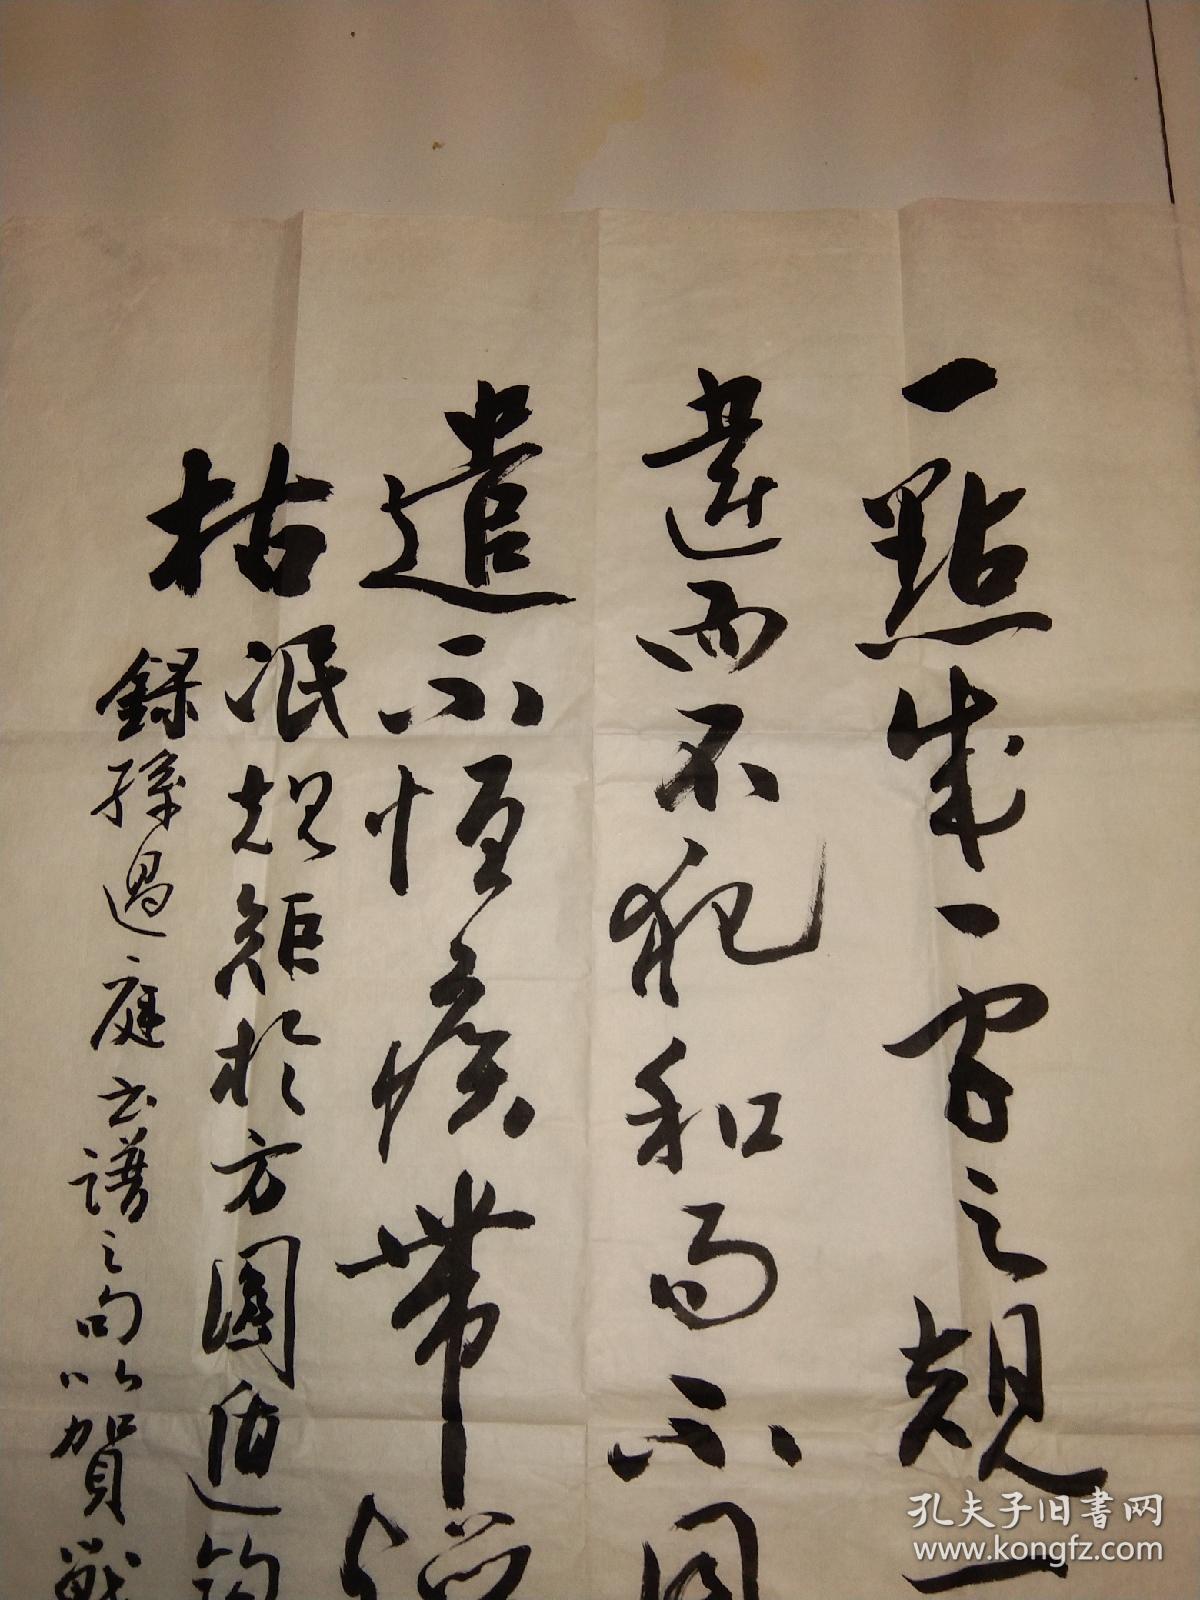 一點成一字之規一
違而不犯和而不同
遣不恒疾帶
枯泯規矩於方圓遁鉤
錄孫過庭書譜之句以賀
孔夫子旧書网
www.kongfz.com